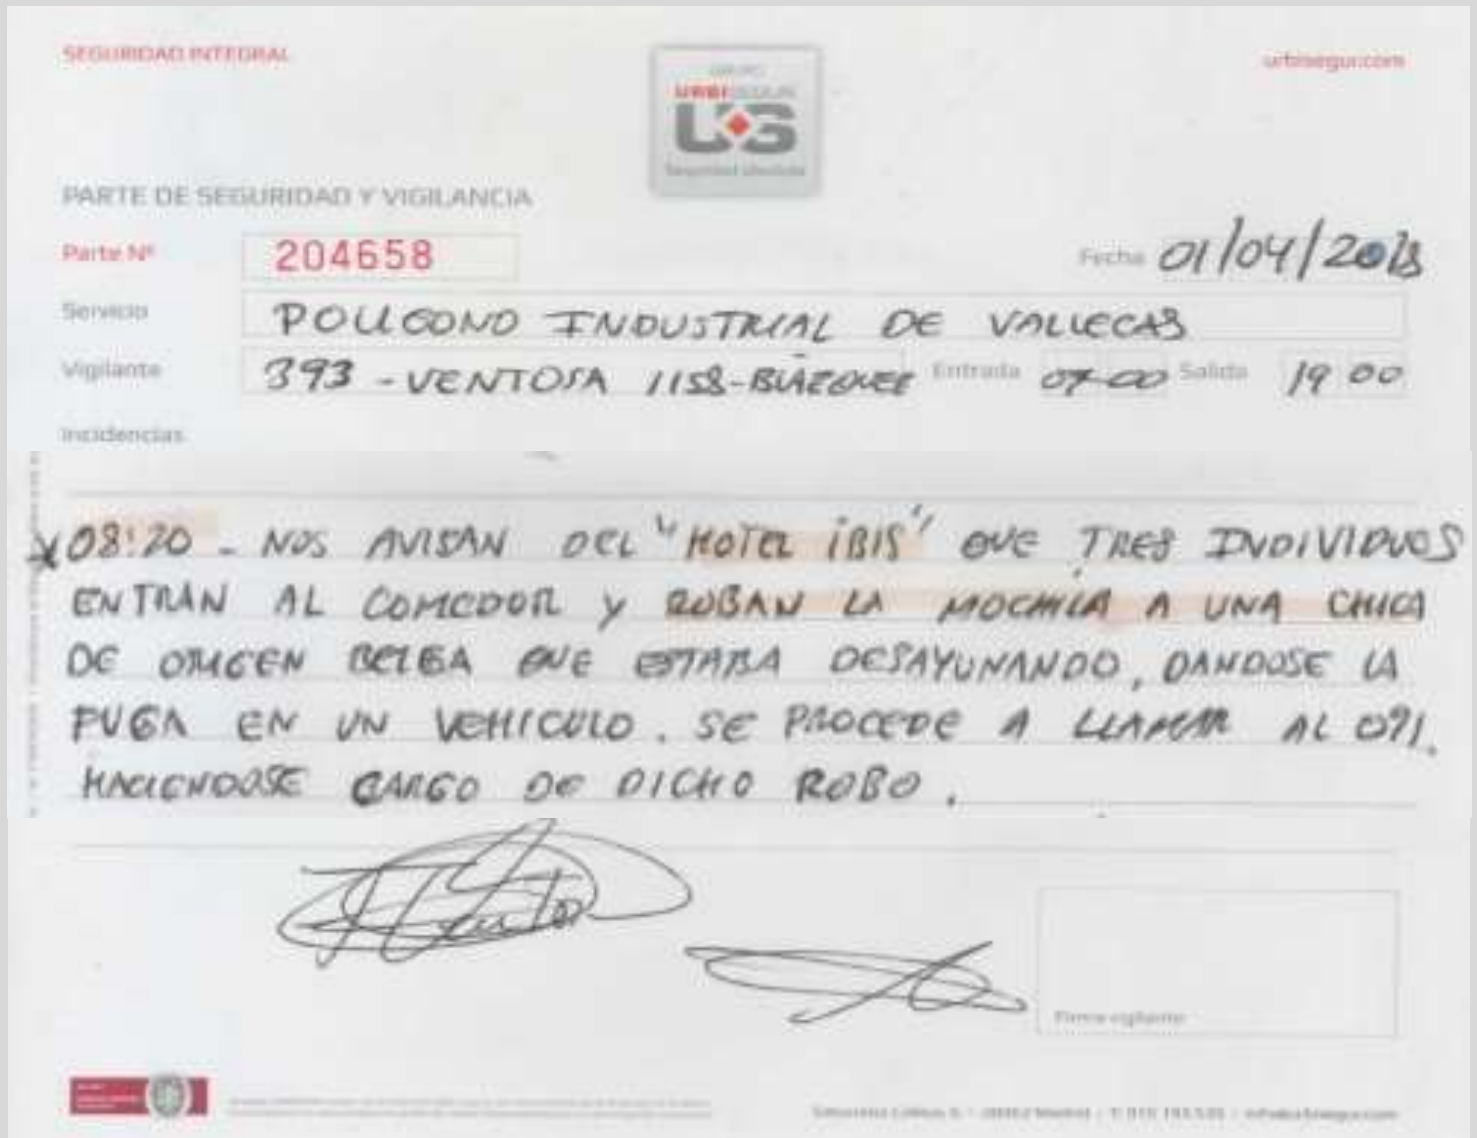 SEGURIDAD INTEGRAL
urbisegur.com
GRUPO
URBISEGUR
UG
Seguridad absoluta
PARTE DE SEGURIDAD Y VIGILANCIA
Parte Nº 204658
Fecha 01/04/2018
Servicio POLIGONO INDUSTRIAL DE VALLECAS
Vigilante 393 - VENTOSA 1158-BLÁZQUEZ Entrada 07 00 Salida 19 00
Incidencias
08:20 - NOS AVISAN DEL "HOTEL IBIS" QUE TRES INDIVIDUOS
ENTRAN AL COMEDOR Y ROBAN LA MOCHILA A UNA CHICA
DE ORIGEN BELGA QUE ESTABA DESAYUNANDO, DANDOSE LA
FUGA EN UN VEHICULO. SE PROCEDE A LLAMAR AL 091.
HACIENDOSE CARGO DE DICHO ROBO.
Firma vigilante